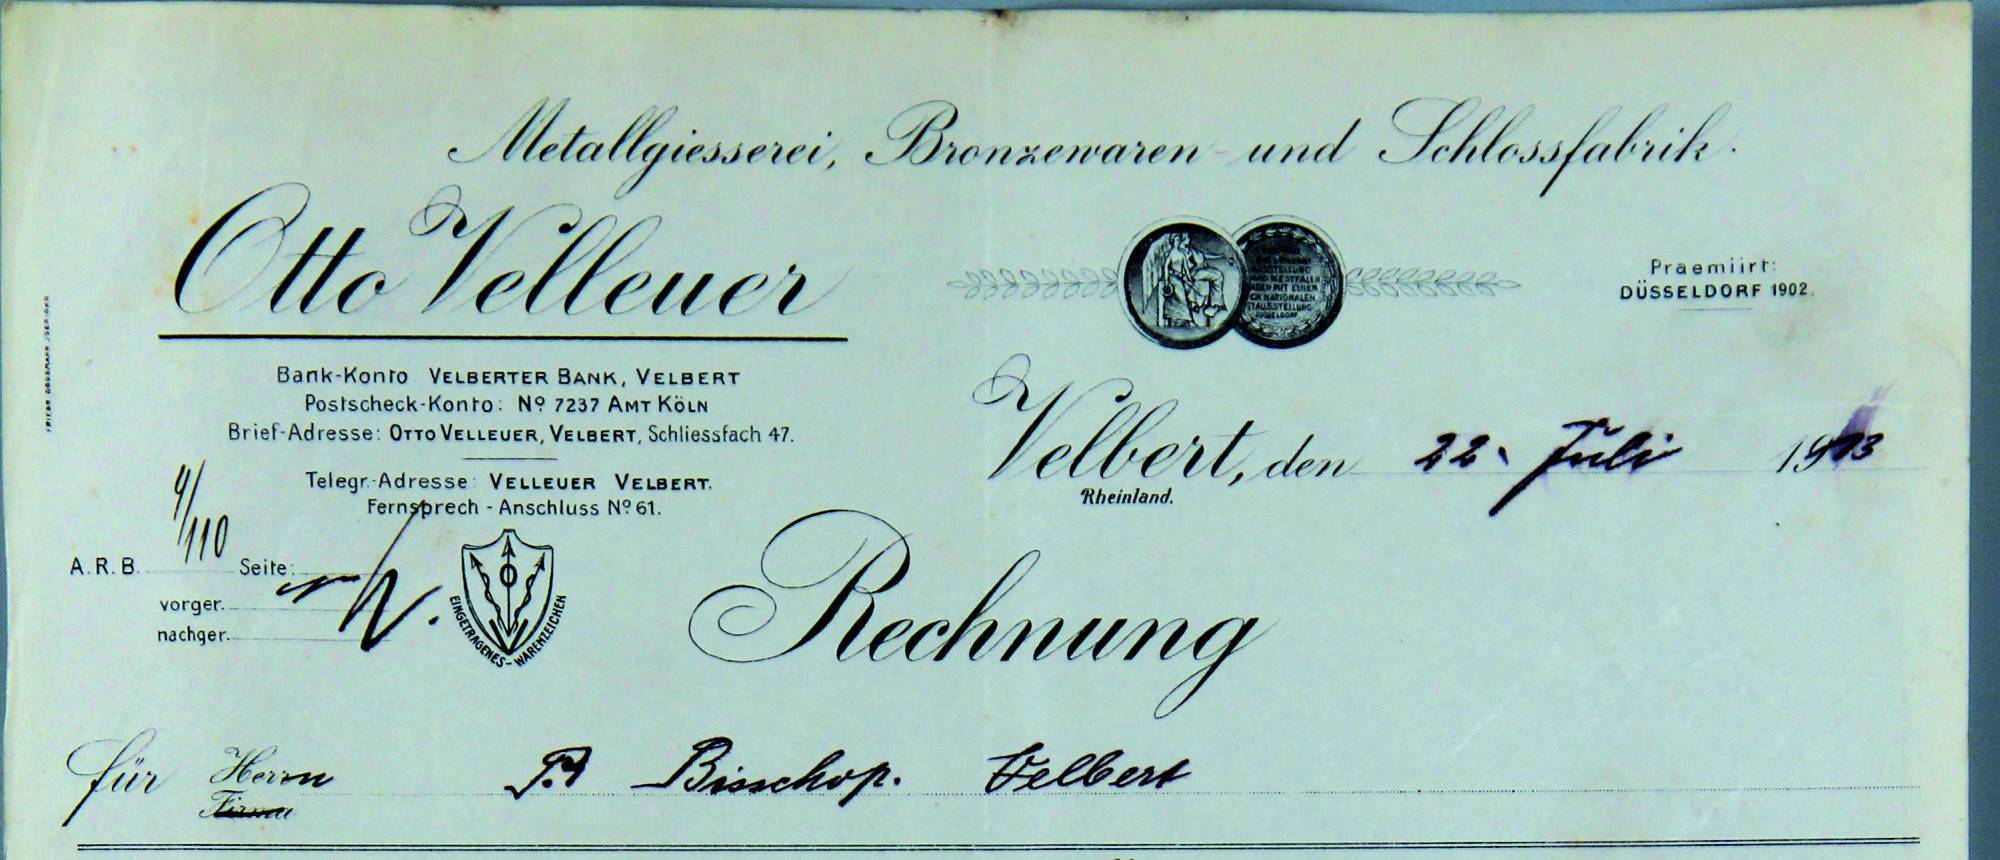 Metallgiesserei, Bronzewaren- und Schlossfabrik.
Otto Velleuer
Praemiirt:
DÜSSELDORF 1902.
Bank-Konto VELBERTER BANK, VELBERT
Postscheck-Konto: Nº 7237 AMT KÖLN
Brief-Adresse: OTTO VELLEUER, VELBERT, Schliessfach 47.
Telegr.-Adresse: VELLEUER VELBERT.
Fernsprech-Anschluss Nº 61.
Velbert, den 22. Juli 1913
Rheinland.
A.R.B. 4/110 Seite:
vorger.
nachger.
EINGETRAGENES-WARENZEICHEN
Rechnung
für Herrn Bisschop. Velbert
Firma